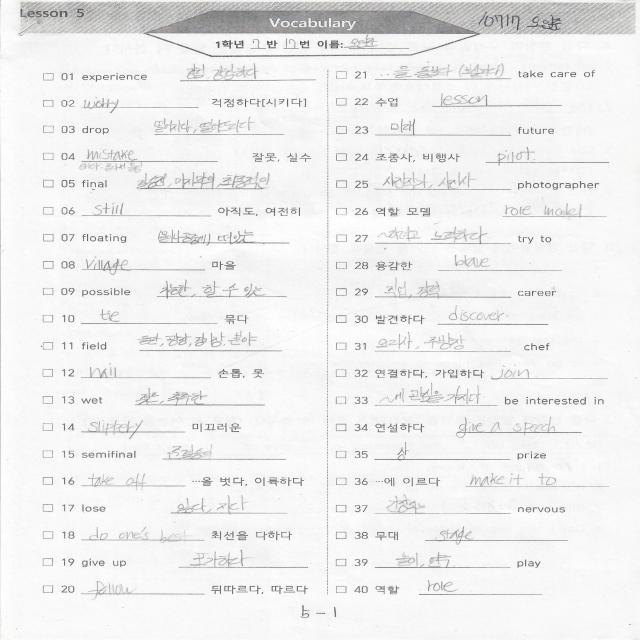 Lesson 5
Vocabulary
10717 오윤
1학년 7 반 17번 이름:
01 experience 경험, 경험하다
02 worry 걱정하다[시키다]
03 drop 떨어지다, 떨어뜨리다
04 mistake 잘못, 실수
05 final 결승전, 마지막의, 최종적인
06 still 아직도, 여전히
07 floating (물 위나 공중에) 떠있는
08 village 마을
09 possible 가능한, 할 수 있는
10 tie 묶다
11 field 들판, 광장, 경기장, 분야
12 nail 손톱, 못
13 wet 젖은, 축축한
14 slippery 미끄러운
15 semifinal 준결승
16 take off …을 벗다, 이륙하다
17 lose 잃다, 지다
18 do one's best 최선을 다하다
19 give up 포기하다
20 follow 뒤따르다, 따르다
21 …을 돌보다 take care of
22 수업 lesson
23 미래 future
24 조종사, 비행사 pilot
25 사진작가, 사진사 photographer
26 역할 모델 role model
27 ~하려고 노력하다 try to
28 용감한 brave
29 직업, 경력 career
30 발견하다 discover
31 요리사, 주방장 chef
32 연결하다, 가입하다 join
33 ~에 관심을 가지다 be interested in
34 연설하다 give a speech
35 상 prize
36 …에 이르다 make it to
37 nervous
38 무대 stage
39 놀이, 연극 play
40 역할 role
5 - 1